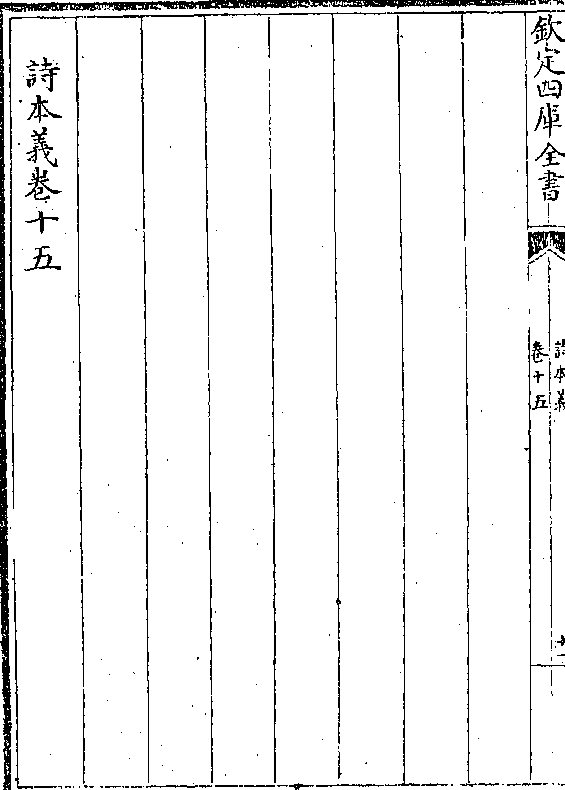 欽定四庫全書
詩本義
卷十五
詩本義卷十五